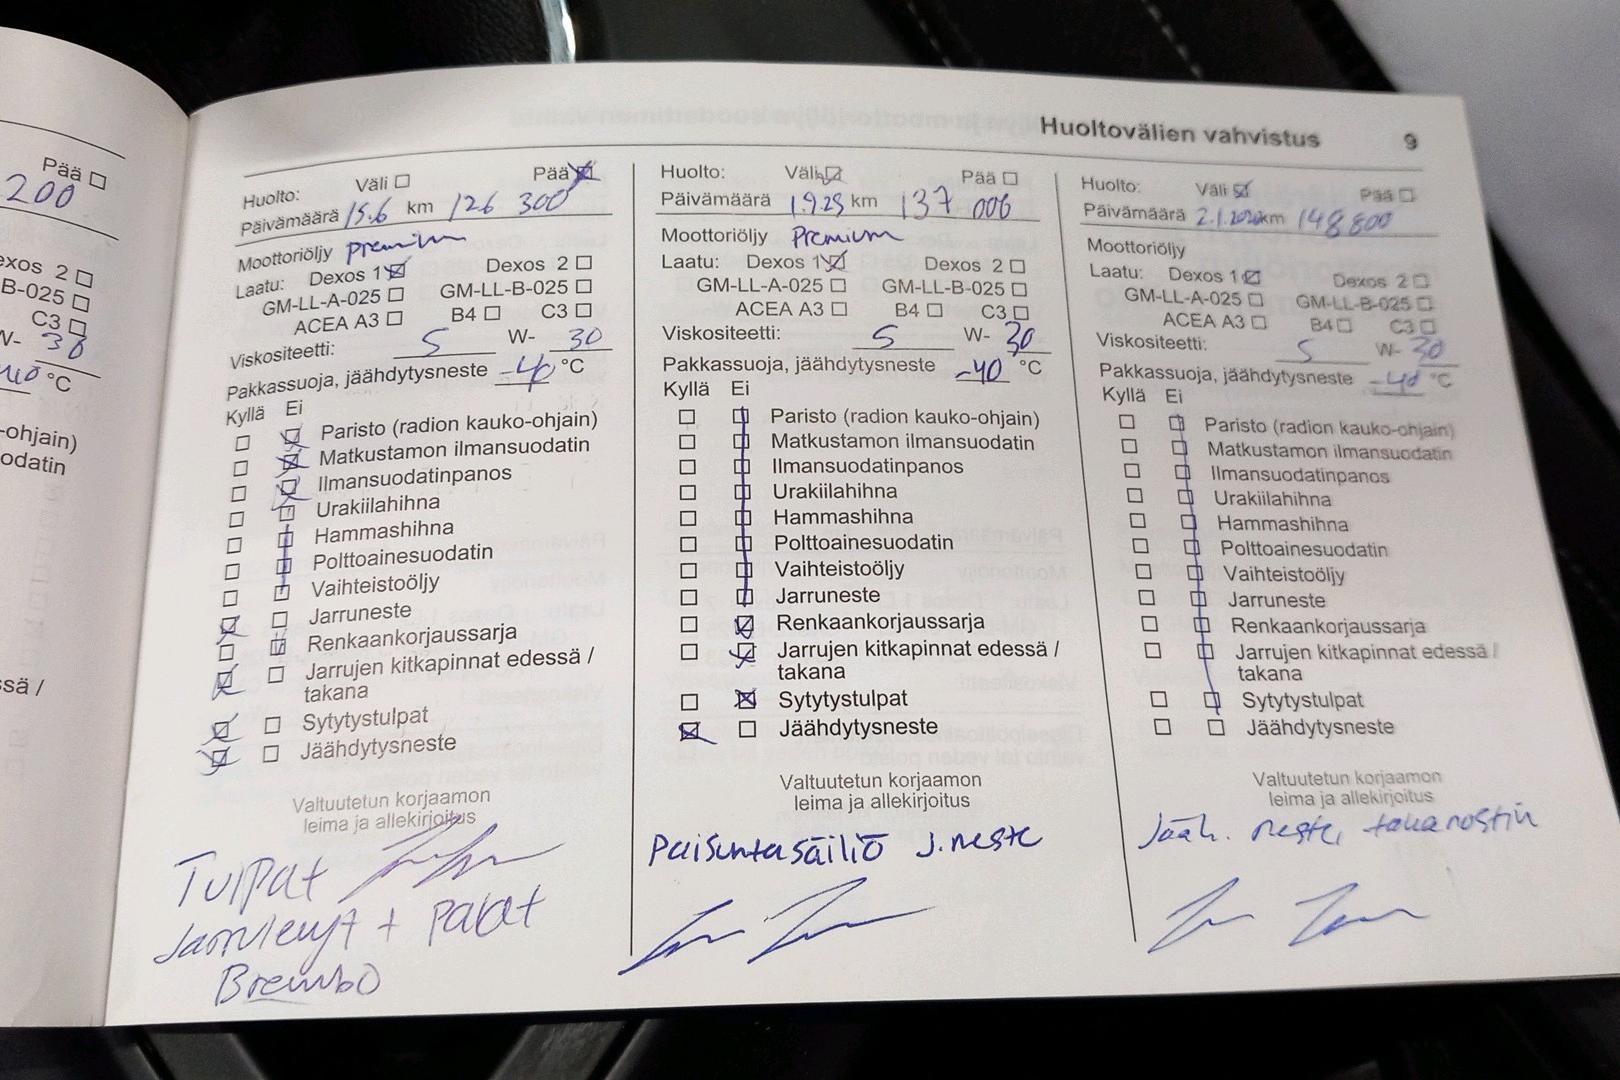 Pää ☐
200
exos 2 ☐
B-025 ☐
C3 ☐
W- 30
°C
-ohjain)
odatin
ssä /
Huoltovälien vahvistus 9
Huolto: Väli ☐ Pää ☒
Päivämäärä 15.6 km 126 300
Moottoriöljy premium
Laatu: Dexos 1 ☒ Dexos 2 ☐
GM-LL-A-025 ☐ GM-LL-B-025 ☐
ACEA A3 ☐ B4 ☐ C3 ☐
Viskositeetti: 5 W- 30
Pakkassuoja, jäähdytysneste -40 °C
Kyllä Ei
☐ ☒ Paristo (radion kauko-ohjain)
☐ ☒ Matkustamon ilmansuodatin
☐ ☒ Ilmansuodatinpanos
☐ ☒ Urakiilahihna
☐ ☒ Hammashihna
☐ ☒ Polttoainesuodatin
☐ ☒ Vaihteistoöljy
☒ ☐ Jarruneste
☐ ☒ Renkaankorjaussarja
☒ ☐ Jarrujen kitkapinnat edessä /
takana
☒ ☐ Sytytystulpat
☒ ☐ Jäähdytysneste
Valtuutetun korjaamon
leima ja allekirjoitus
Tulpat
Jarrulevyt + palat
Brembo
Huolto: Väli ☒ Pää ☐
Päivämäärä 1.9.25 km 137 006
Moottoriöljy Premium
Laatu: Dexos 1 ☒ Dexos 2 ☐
GM-LL-A-025 ☐ GM-LL-B-025 ☐
ACEA A3 ☐ B4 ☐ C3 ☐
Viskositeetti: 5 W- 30
Pakkassuoja, jäähdytysneste -40 °C
Kyllä Ei
☐ ☒ Paristo (radion kauko-ohjain)
☐ ☒ Matkustamon ilmansuodatin
☐ ☒ Ilmansuodatinpanos
☐ ☒ Urakiilahihna
☐ ☒ Hammashihna
☐ ☒ Polttoainesuodatin
☐ ☒ Vaihteistoöljy
☐ ☒ Jarruneste
☐ ☒ Renkaankorjaussarja
☐ ☒ Jarrujen kitkapinnat edessä /
takana
☐ ☒ Sytytystulpat
☒ ☐ Jäähdytysneste
Valtuutetun korjaamon
leima ja allekirjoitus
Paisuntasäiliö J.neste
Huolto: Väli ☒ Pää ☐
Päivämäärä km 148 800
Moottoriöljy
Laatu: Dexos 1 ☒ Dexos 2 ☐
GM-LL-A-025 ☐ GM-LL-B-025 ☐
ACEA A3 ☐ B4 ☐ C3 ☐
Viskositeetti: 5 W- 30
Pakkassuoja, jäähdytysneste -40 °C
Kyllä Ei
☐ ☒ Paristo (radion kauko-ohjain)
☐ ☒ Matkustamon ilmansuodatin
☐ ☒ Ilmansuodatinpanos
☐ ☒ Urakiilahihna
☐ ☒ Hammashihna
☐ ☒ Polttoainesuodatin
☐ ☒ Vaihteistoöljy
☐ ☒ Jarruneste
☐ ☒ Renkaankorjaussarja
☐ ☒ Jarrujen kitkapinnat edessä /
takana
☐ ☒ Sytytystulpat
☐ ☐ Jäähdytysneste
Valtuutetun korjaamon
leima ja allekirjoitus
Jääh. neste, takanostin